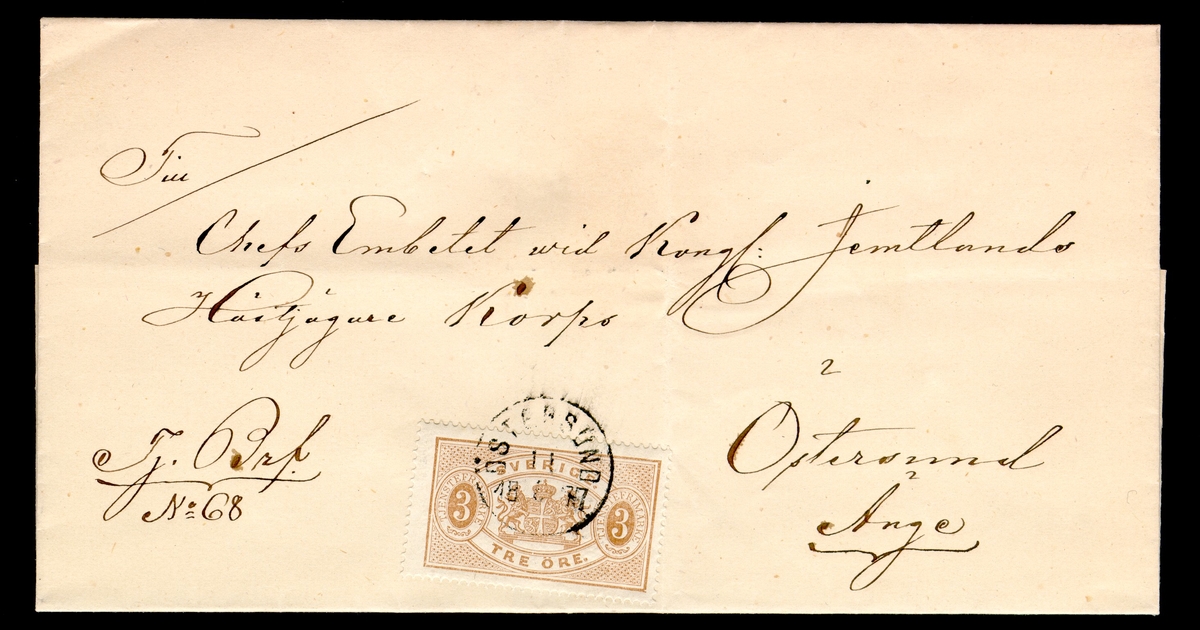 Till
Chefs Embetet wid Kongl: Jemtlands
Hästjägare Korps
Östersund
Ånge
Tj. Brf.
No 68
ÖSTERSUND
11
SVERIGE
TJENSTEFRIMÄRKE
3
3
TRE ÖRE.